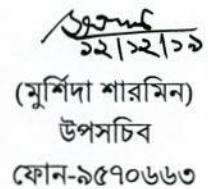 ১২/১২/১৯
(মুর্শিদা শারমিন)
উপসচিব
ফোন-৯৫৭০৬৬৩